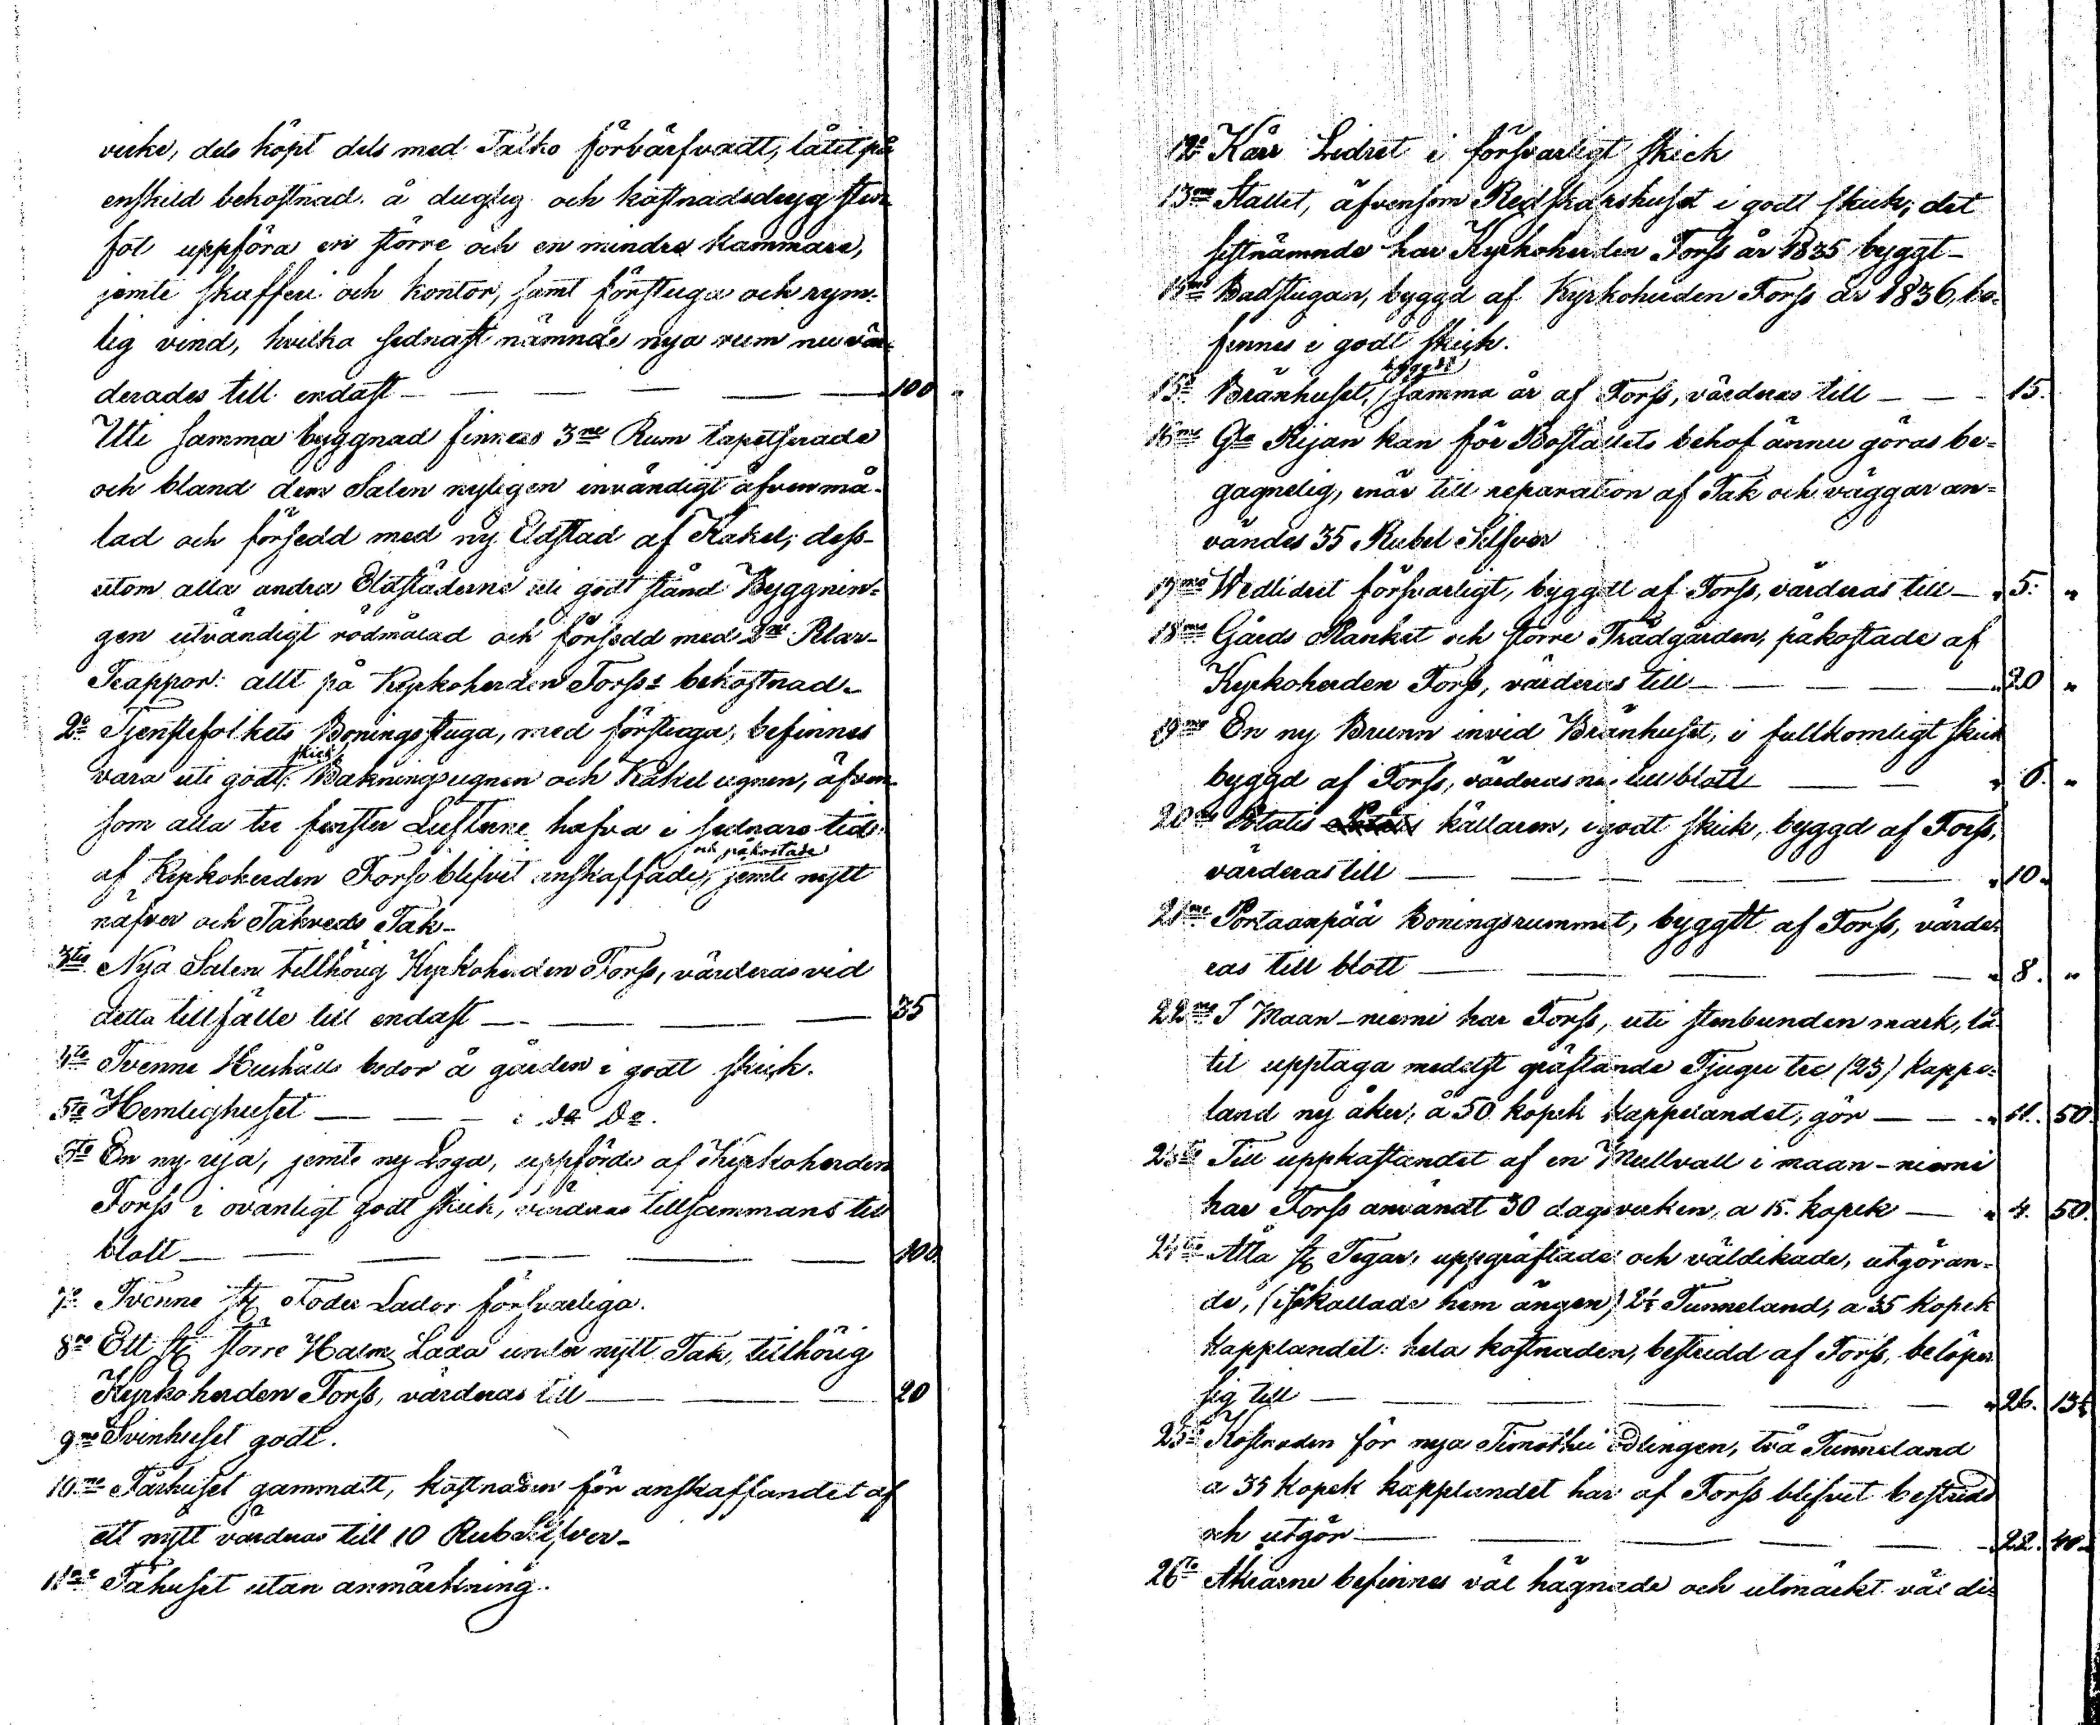 virke, dels köpt dels med Talko förvärfvadt, låtit på
enskild bekostnad å duglig och kostnadsdryg sten-
fot uppföra en större och en mindre kammare,
jemte skafferi och kontor, samt förstuga och rym-
lig vind, hvilka sednast nämnde nya rum nu vär-
derades till endast — — — — 100 "
Uti samma byggnad finnes 3ne Rum tapetserade
och bland dem Salen nyligen invändigt äfven må-
lad och försedd med ny Eldstad af Kakel, dess-
utom alla andra Eldstäderne uti godt stånd. Byggnin-
gen utvändigt rödmålad och försedd med 2ne
Trappor: allt på Kyrkoherden Forss's bekostnad.
2o Tjenstefolkets Boningsstuga, med förstuga, befinnes
vara uti godt skick: Bakningsugnen och Kakel ugnen, äfven-
som alla tre fenster Lufterne hafva i sednare tid
af Kyrkoherden Forss blifvit anskaffade, och påkostade jemte nytt
näfver och Takveds Tak-
3tio Nya Salen tillhörig Kyrkoherden Forss, värderas vid
detta tillfälle till endast — — — 35
4to Tvenne Hushålls bodor å gården i godt skick.
5to Hemlighuset — — — i do Do.
En ny rya, jemte ny Loga, uppförde af Kyrkoherden
Forss i ovanligt godt skick, värderas tillsammans till
blott — — — — — 100.
7o Tvenne st Foder Lador försvarliga.
8vo Ett st större Halm Lada under nytt Tak, tillhörig
Kyrkoherden Forss, värderas till — — — 20
9no Svinhuset godt.
10mo Fårhuset gammalt, kostnaden för anskaffandet af
ett nytt värderas till 10 Rub Silfver-
11mo Fähuset utan anmärkning.
12o Kärr Lidret i försvarligt skick
13mo Stallet, äfvensom Redskapshuset i godt skick; det
sistnämnde har Kyrkoherden Forss år 1835 byggt-
14mo Badstugan, byggd af Kyrkoherden Forss år 1836, be-
finnes i godt skick.
15o Bränhuset, byggdt samma år af Forss, värderas till — — 15.
16mo Gla Rijan kan för Boställets behof ännu göras be-
gagnelig, enär till reparation af Tak och väggar an-
vändes 35 Rubel Silfver
17mo Wedlidret försvarligt, byggdt af Forss, värderas till — " 5. "
18mo Gårds Planket och större Trädgården, påkostade af
Kyrkoherden Forss, värderas till — — — " 20 "
19mo En ny Brunn invid Bränhuset, i fullkomligt skick
byggd af Forss, värderas nu till blott — — " 6. "
20mo Potatis källaren, i godt skick, byggd af Forss,
värderas till — — — — " 10 "
21mo Portaanpää Boningsrummet, byggdt af Forss, värde-
ras till blott — — — — " 8. "
22mo I Maan-niemi har Forss, uti stenbunden mark, lå-
tit upptaga medelst gräftande Tjugu tre (23) kappe-
land ny åker, à 50 kopek kapplandet, gör — — " 11. 50.
23to Till uppkastandet af en Mullvall i maan-niemi
har Forss användt 30 dagsverken, a 15. kopek — " 4. 50.
24to Åtta st Tegar, uppgräftade och väldikade, utgöran-
de, (i så kallade hem ängen) 2½ Tunneland, a 35 kopek
Kapplandet: hela kostnaden, bestridd af Forss, belöper
sig till — — — — — " 26. 13½
25to Kostnaden för nya Timothei odlingen, två Tunneland
a 35 kopek kapplandet har af Forss blifvit bestridd
och utgör — — — — — 22. 40.
26to Åkrarne befinnes väl hägnade och utmärkt väl di-